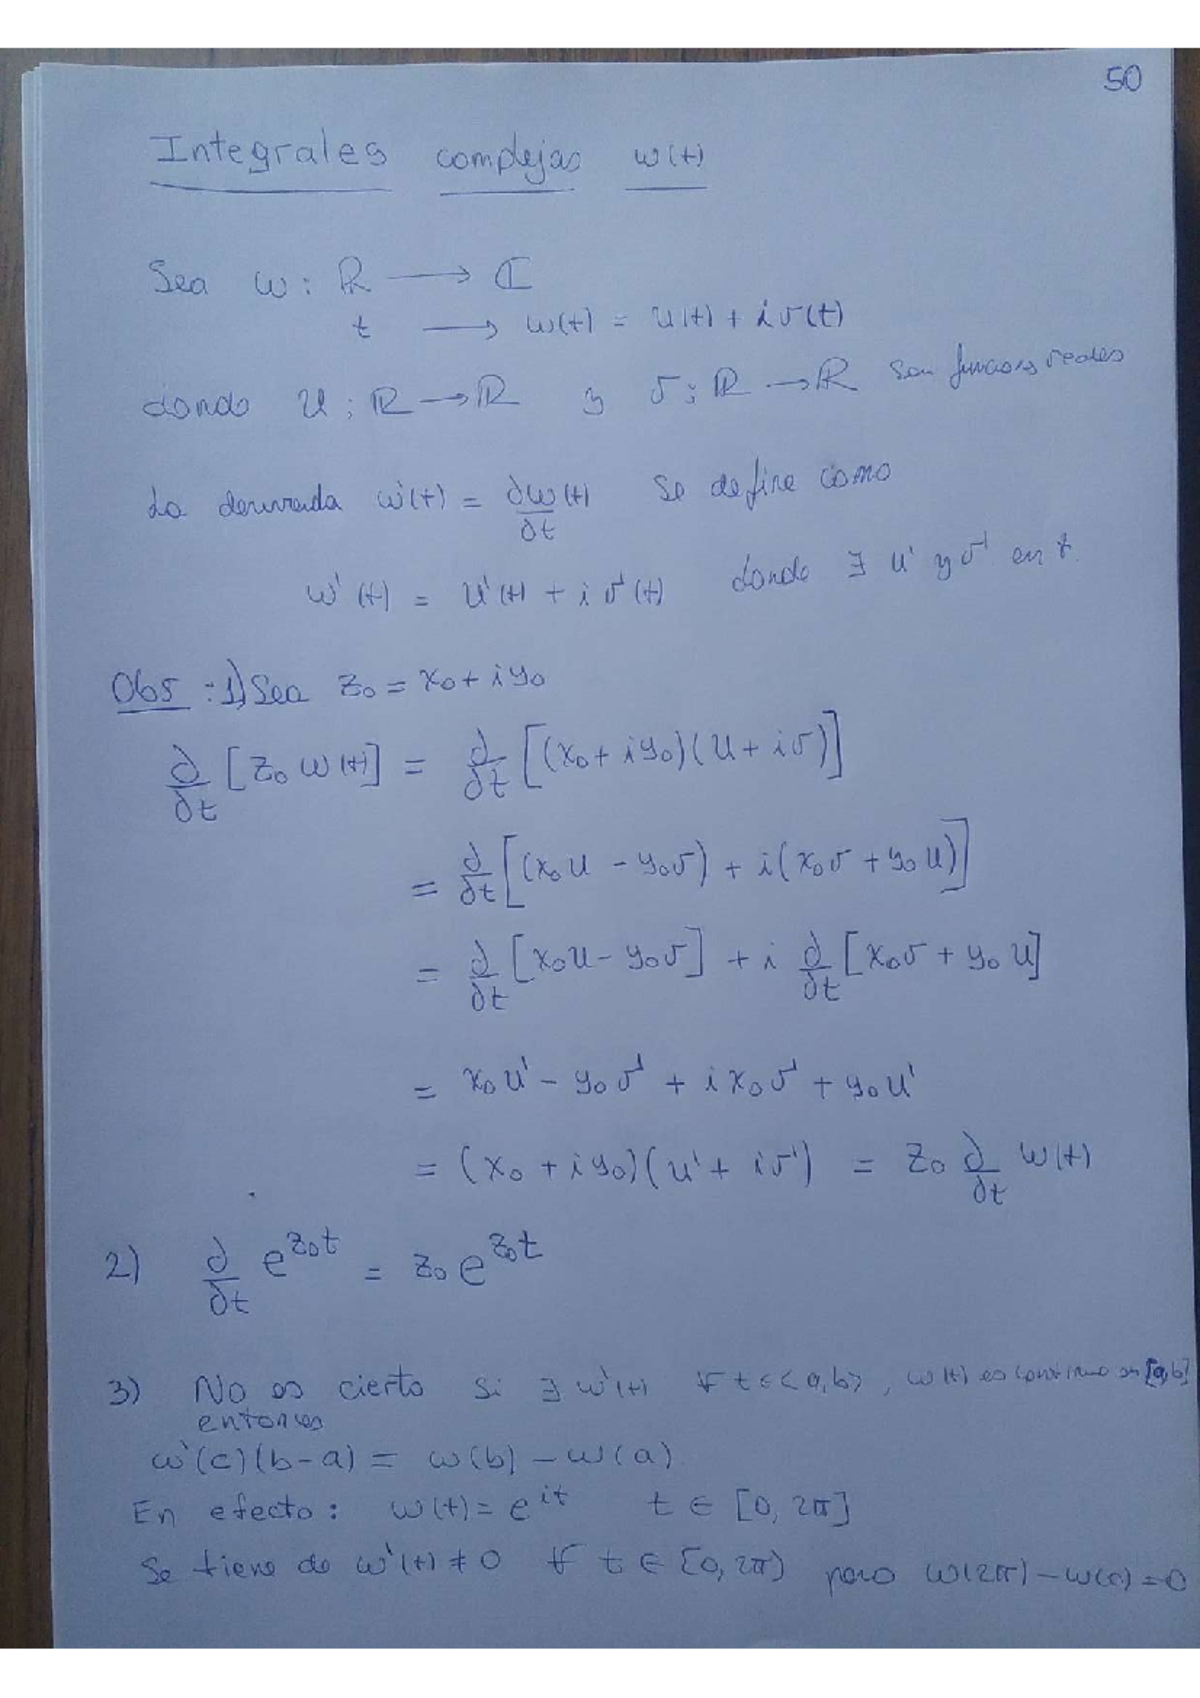 50
Integrales complejas w(t)
Sea w: ℝ ⟶ ℂ
t ⟶ w(t) = u(t) + i v(t)
donde u: ℝ → ℝ y v: ℝ → ℝ son funciones reales
La derivada w'(t) = ∂w(t)/∂t se define como
w'(t) = u'(t) + i v'(t) donde ∃ u' y v' en t.
Obs: 1) Sea z₀ = x₀ + i y₀
∂/∂t [z₀ w(t)] = ∂/∂t [(x₀ + i y₀)(u + i v)]
= ∂/∂t [(x₀ u - y₀ v) + i(x₀ v + y₀ u)]
= ∂/∂t [x₀ u - y₀ v] + i ∂/∂t [x₀ v + y₀ u]
= x₀ u' - y₀ v' + i x₀ v' + y₀ u'
= (x₀ + i y₀)(u' + i v') = z₀ ∂/∂t w(t)
2) ∂/∂t e^{z₀t} = z₀ e^{z₀t}
3) No es cierto si ∃ w'(t) ∀ t ∈ <a,b>, w(t) es continua en [a,b]
entonces
w'(c)(b-a) = w(b) - w(a)
En efecto: w(t) = e^{it} t ∈ [0, 2π]
Se tiene de w'(t) ≠ 0 ∀ t ∈ [0, 2π) pero w(2π) - w(0) = 0